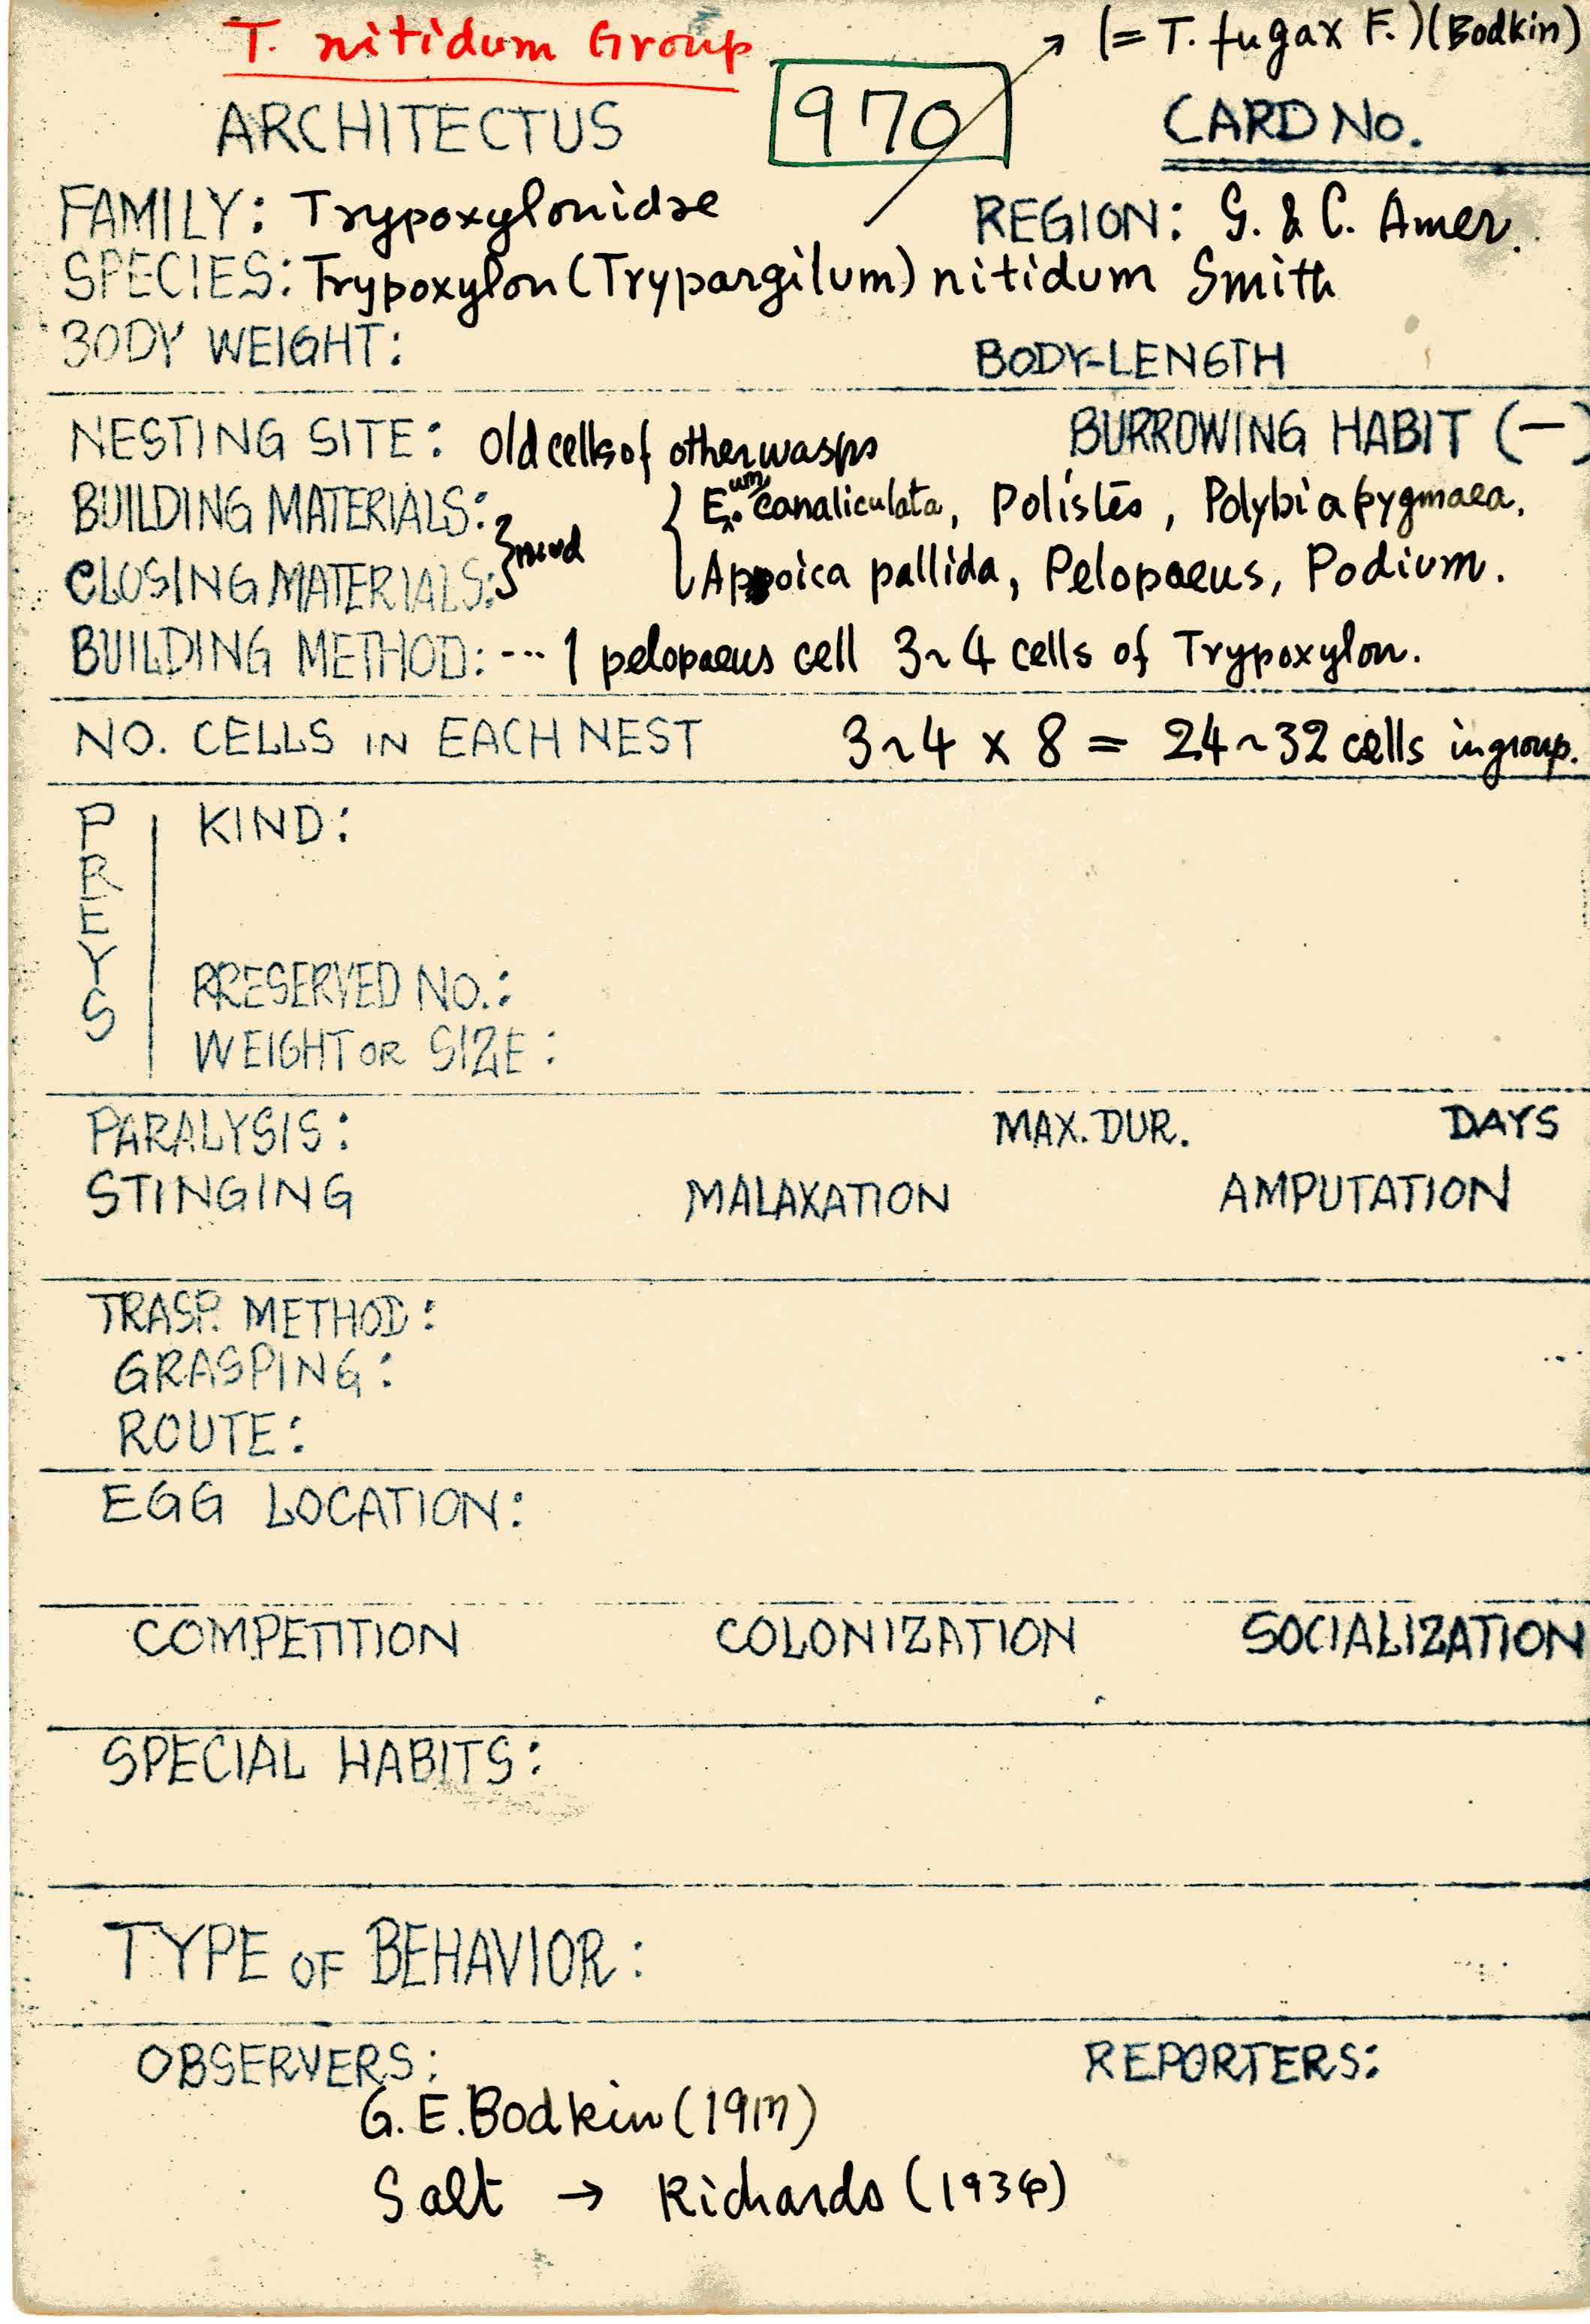 T. nitidum Group
(= T. fugax F.)(Bodkin)
ARCHITECTUS 970 CARD NO.
FAMILY: Trypoxylonidae REGION: S. & C. Amer.
SPECIES: Trypoxylon (Trypargilum) nitidum Smith
BODY WEIGHT: BODY-LENGTH
NESTING SITE: Old cells of other wasps BURROWING HABIT (—)
BUILDING MATERIALS: } mud { E.um canaliculata, Polistes, Polybia pygmaea,
CLOSING MATERIALS: Apoica pallida, Pelopaeus, Podium.
BUILDING METHOD: --- 1 pelopaeus cell 3~4 cells of Trypoxylon.
NO. CELLS IN EACH NEST 3~4 x 8 = 24~32 cells in group.
PREYS
KIND:
PRESERVED NO.:
WEIGHT OR SIZE:
PARALYSIS: MAX. DUR. DAYS
STINGING MALAXATION AMPUTATION
TRASP. METHOD:
GRASPING:
ROUTE:
EGG LOCATION:
COMPETITION COLONIZATION SOCIALIZATION
SPECIAL HABITS:
TYPE OF BEHAVIOR:
OBSERVERS: REPORTERS:
G. E. Bodkin (1917)
Salt → Richards (1934)